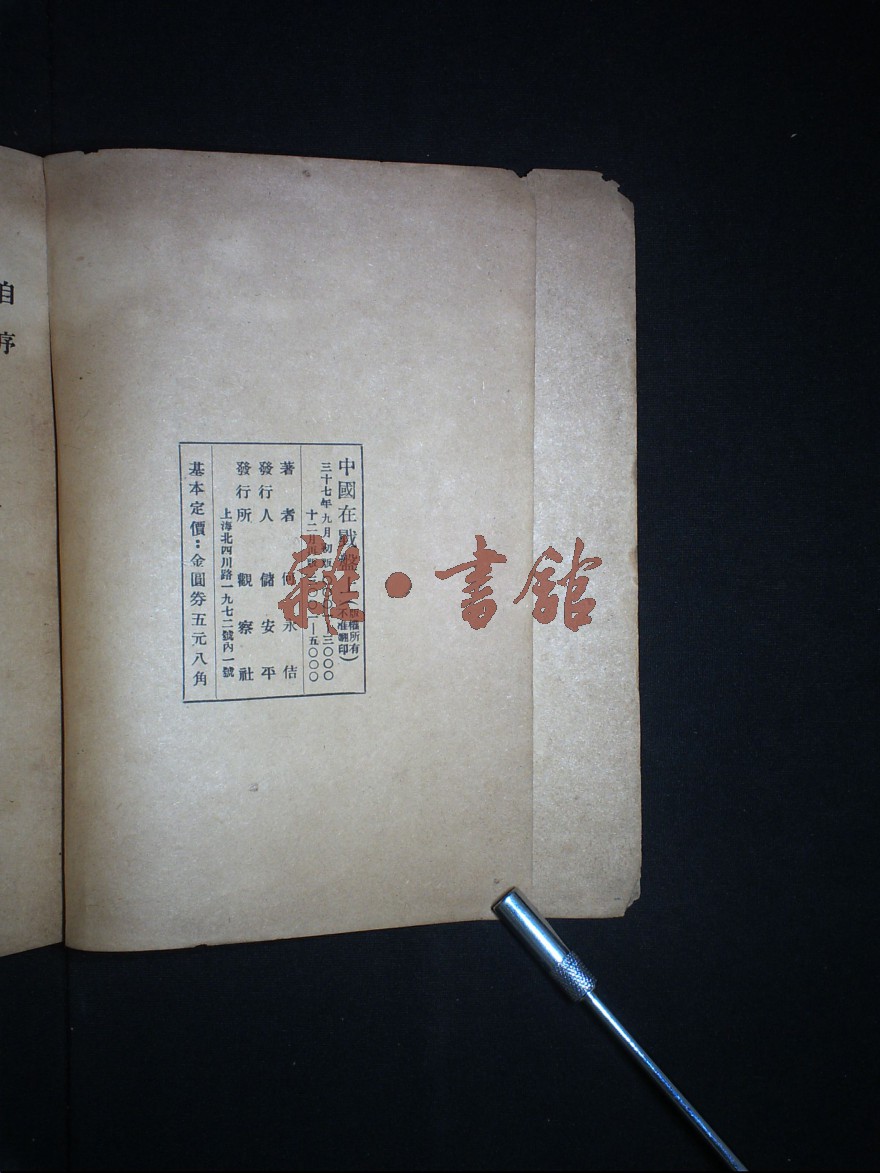 中國在戥盤上
(版權所有
不准翻印)
三十七年九月初版〇〇〇一—三〇〇〇
十二月再版三〇〇一—五〇〇〇
著者 何永佶
發行人 儲安平
發行所 觀察社
上海北四川路一九七二號內一號
基本定價：金圓券五元八角
自序
雜·書館